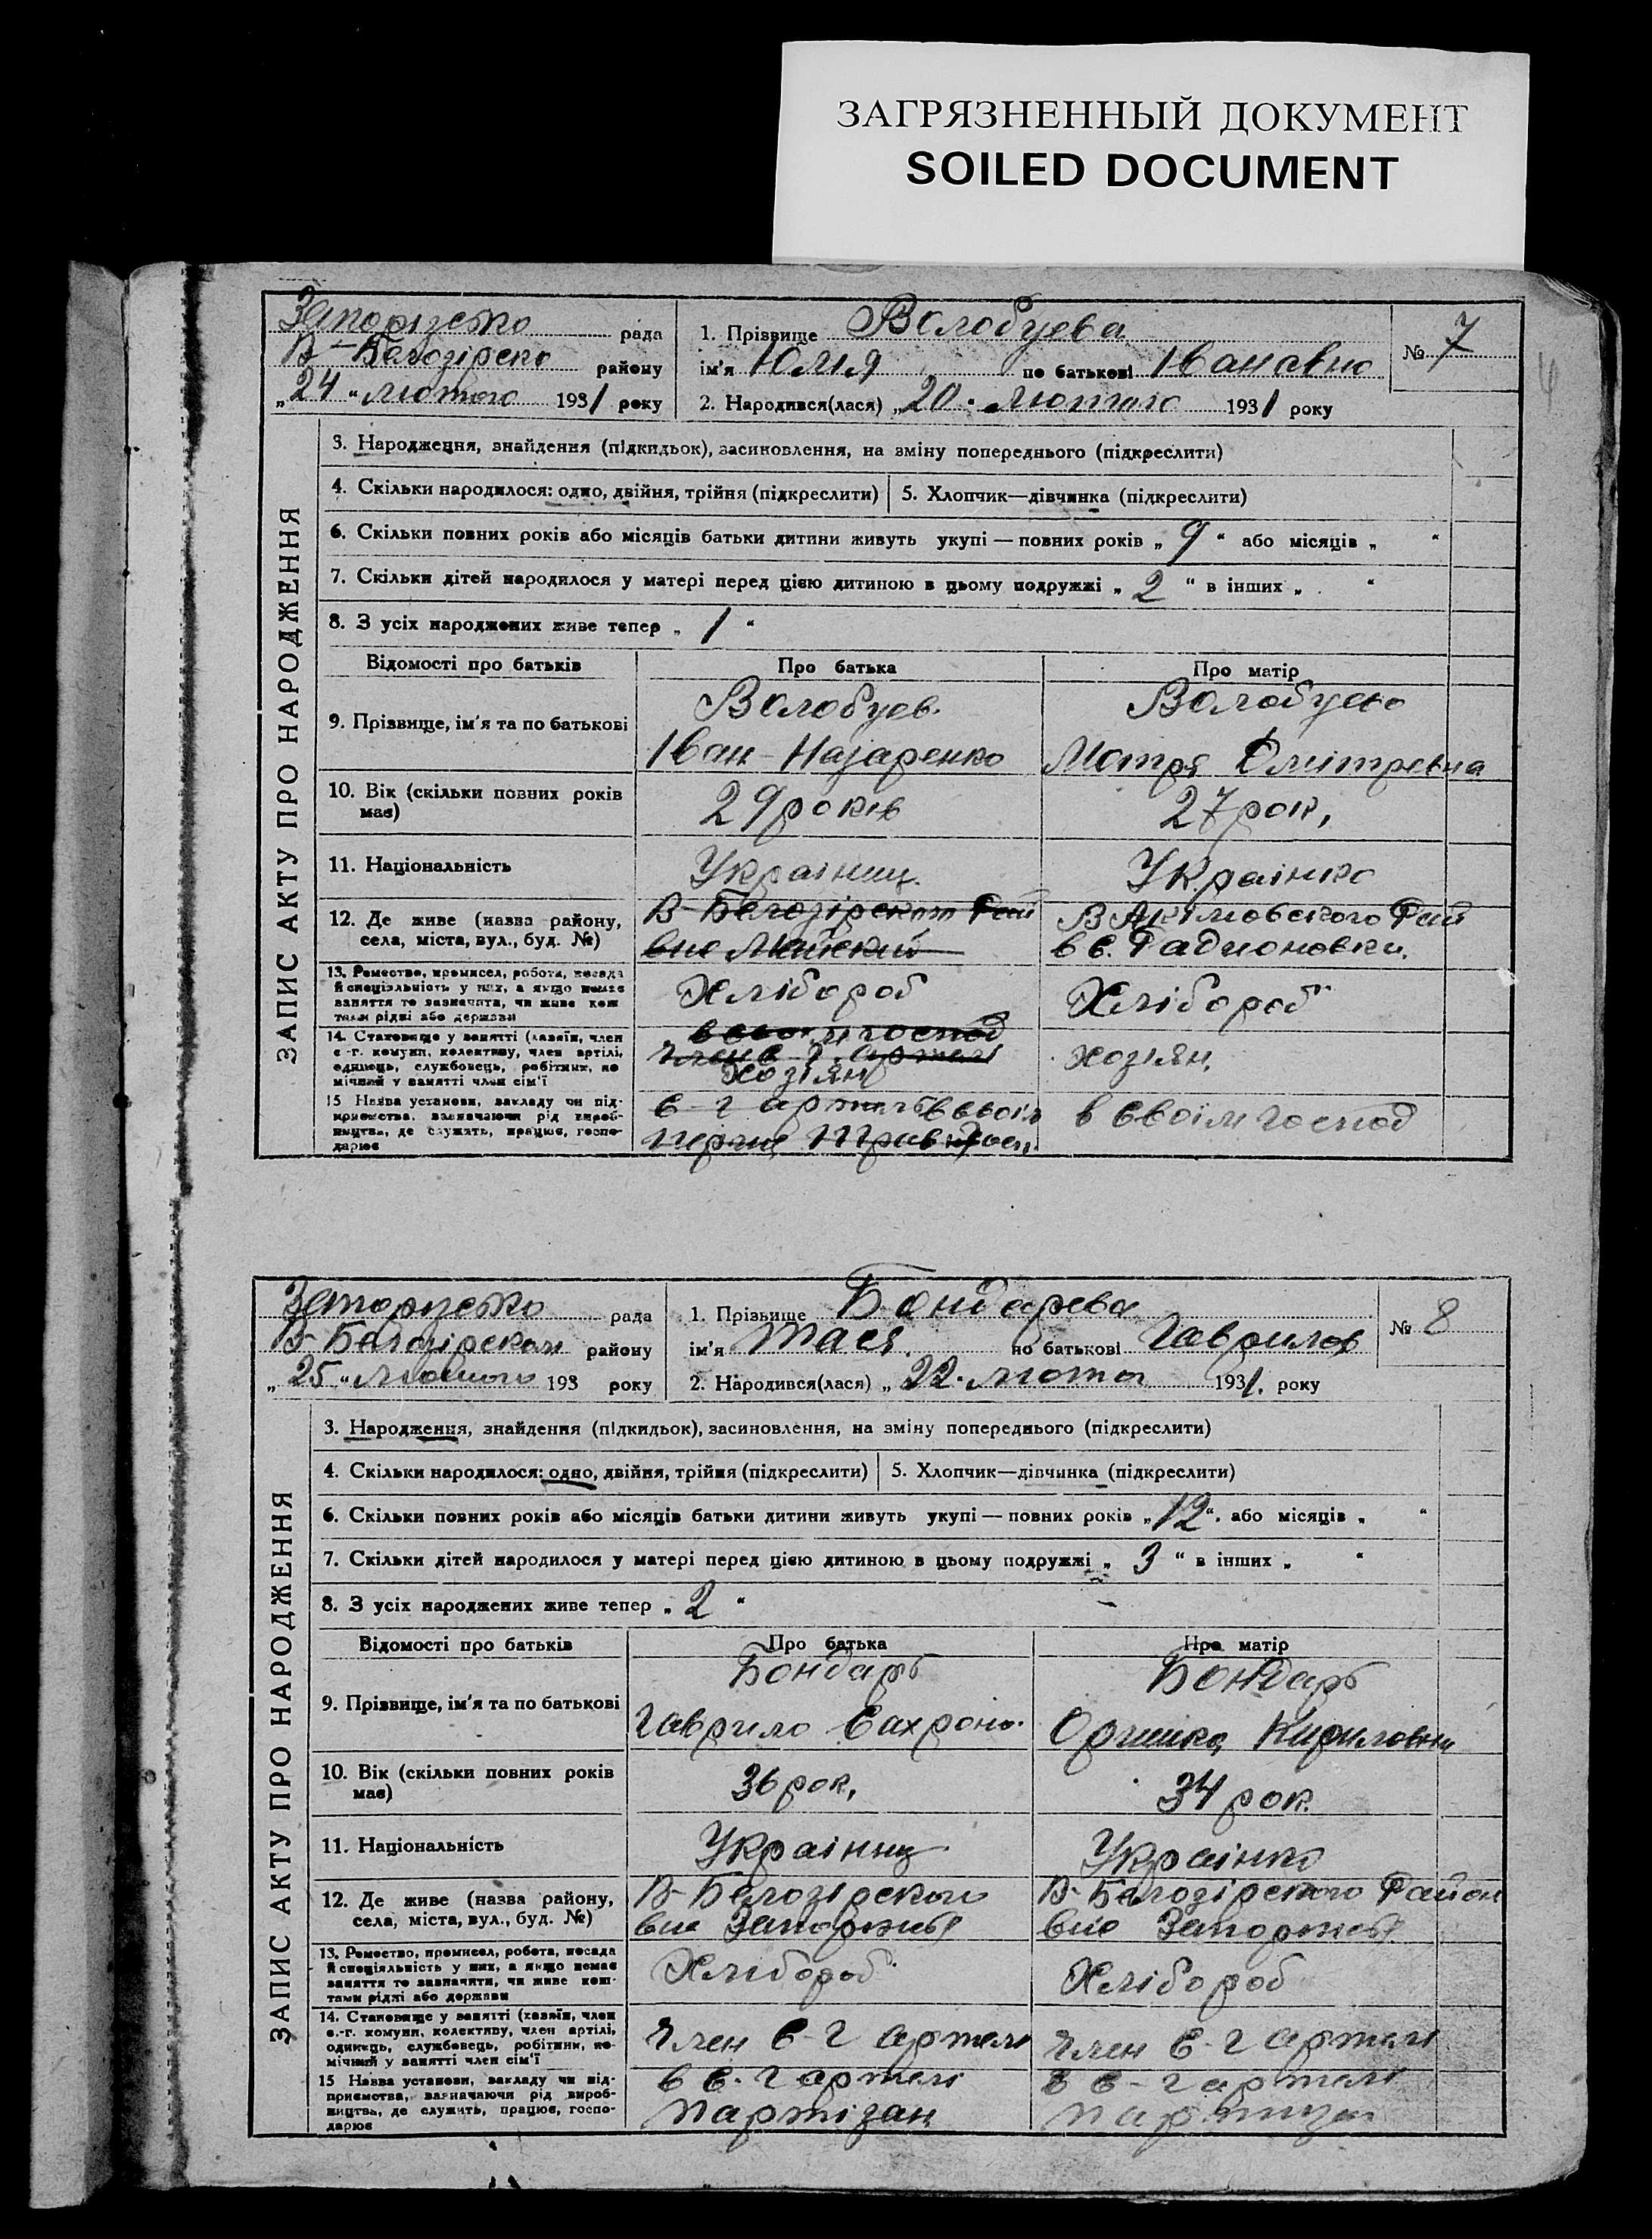 ЗАГРЯЗНЕННЫЙ ДОКУМЕНТ
SOILED DOCUMENT
рада
В-Белозірско району
„24“ Лютого 1931 року
1. Прізвище Волобуева
ім'я Юлія по батькові Івановна
2. Народився(лася) „20. Лютого 1931 року
№ 7
ЗАПИС АКТУ ПРО НАРОДЖЕННЯ
3. Народження, знайдення (підкидьок), засиновлення, на зміну попереднього (підкреслити)
4. Скільки народилося: одно, двійня, трійня (підкреслити) 5. Хлопчик—дівчинка (підкреслити)
6. Скільки повних років або місяців батьки дитини живуть укупі — повних років „ 9 “ або місяців „ “
7. Скільки дітей народилося у матері перед цією дитиною в цьому подружжі „ 2 “ в інших „ “
8. З усіх народжених живе тепер „ 1 “
Відомості про батьків Про батька Про матір
9. Прізвище, ім'я та по батькові
Волобуев. Волобуево
Іван Назаренко Мотря Дмітревна
10. Вік (скільки повних років має)
29 років 27 рок,
11. Національність
Украінец. Украінка
12. Де живе (назва району, села, міста, вул., буд. №)
В-Белозірском Рай В Акімовского Рай
в с. Радионовки.
13. Ремество, промисел, робота, посада й спеціяльність у них, а якщо немає заняття то зазначити, чи живе коштами рідні або держави
Хлібороб Хлібороб
14. Становище у занятті (хазяїн, член с.-г. комуни, колективу, член артілі, одинець, службовець, робітник, помічний у занятті член сім'ї
в своім господ
член с. г. артелі
Хозіян хозіян.
15 Назва установи, закладу чи підприємства, вазначаючи рід виробництва, де служить, працює, господарює
с-г артель в своім в своім господ
рада
В-Белозірском району
„25“ Лютого 193 року
1. Прізвище Бондарева
ім'я Тася. по батькові Гаврилов
2. Народився(лася) „22. люто 1931. року
№ 8
ЗАПИС АКТУ ПРО НАРОДЖЕННЯ
3. Народження, знайдення (підкидьок), засиновлення, на зміну попереднього (підкреслити)
4. Скільки народилося: одно, двійня, трійня (підкреслити) 5. Хлопчик—дівчинка (підкреслити)
6. Скільки повних років або місяців батьки дитини живуть укупі — повних років „12“. або місяців „ “
7. Скільки дітей народилося у матері перед цією дитиною в цьому подружжі „ 3 “ в інших „ “
8. З усіх народжених живе тепер „ 2 “
Відомості про батьків Про батька Про матір
9. Прізвище, ім'я та по батькові
Бондарь Бондарь
Гаврило Сахроно. Оришка Кириловни
10. Вік (скільки повних років має)
36 рок, 34 рок.
11. Національність
Украінец Украінка
12. Де живе (назва району, села, міста, вул., буд. №)
В-Белозірского В-Белозірского Район
13. Ремество, промисел, робота, посада й спеціяльність у них, а якщо немає заняття то зазначити, чи живе коштами рідні або держави
Хлібороб Хлібороб
14. Становище у занятті (хазяїн, член с.-г. комуни, колективу, член артілі, одинець, службовець, робітник, помічний у занятті член сім'ї
Член С-г артелі Член С-г артелі
15 Назва установи, закладу чи підприємства, вазначаючи рід виробництва, де служить, працює, господарює
в С.-г артелі в С-г артелі
Партізан Партизан